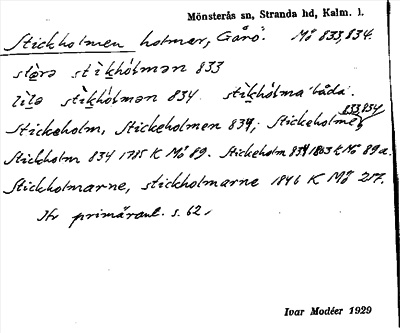 Mönsterås sn, Stranda hd, Kalm. l.
Stickholmen holmar, Gårö. Mö 833, 834.
stèrə stìkhólmən 833
lìlə stìkhólmən 834 stìkhólma båda.
Stickholm, Stickeholmen 834, Stickeholme 833, 834
Stickholm 834 1785 K Mö 89. Stickeholm 834 1803 K Mö 89a.
Stickholmarne, stickholmarne 1846 K Mö 217.
Jfr primäruul. s. 62.
Ivar Modéer 1929